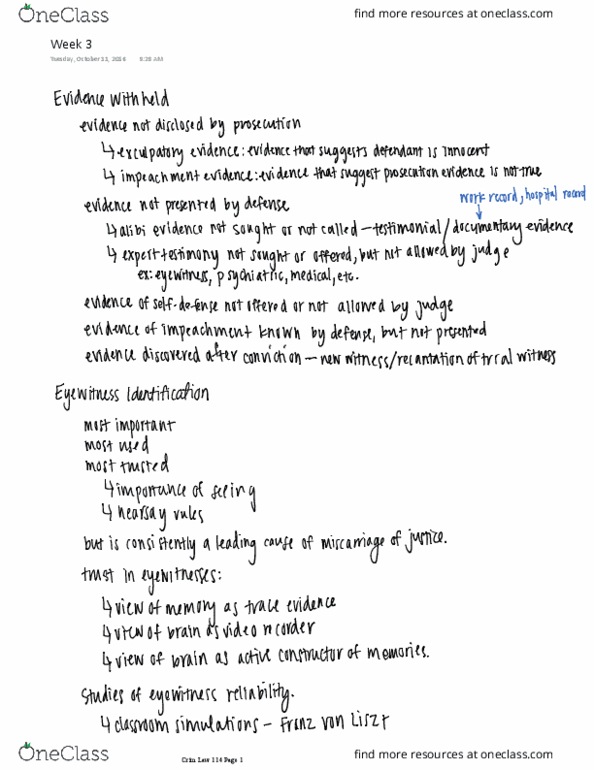 OneClass
find more resources at oneclass.com
Week 3
Tuesday, October 11, 2016 8:28 AM
Evidence Withheld
evidence not disclosed by prosecution
↳ exculpatory evidence: evidence that suggests defendant is innocent
↳ impeachment evidence: evidence that suggest prosecution evidence is not true
work record, hospital record
evidence not presented by defense
↳ alibi evidence not sought or not called – testimonial/documentary evidence
↳ expert testimony not sought or offered, but not allowed by judge
ex: eyewitness, psychiatric, medical, etc.
evidence of self-defense not offered or not allowed by judge
evidence of impeachment known by defense, but not presented
evidence discovered after conviction – new witness/recantation of trial witness
Eyewitness Identification
most important
most used
most trusted
↳ importance of seeing
↳ hearsay rules
but is consistently a leading cause of miscarriage of justice.
trust in eyewitnesses:
↳ view of memory as trace evidence
↳ view of brain as video recorder
↳ view of brain as active constructor of memories.
studies of eyewitness reliability.
↳ classroom simulations – Franz von Liszt
OneClass
Crim Law 114 Page 1
find more resources at oneclass.com